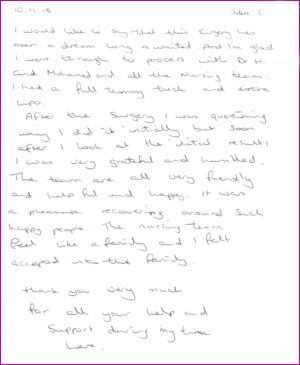 10.11.15 Jules C
I would like to say that this surgery has
been a dream long awaited. And I'm glad
I went through to process with Dr Hi
and Mohamed and all the Nursing team.
I had a full tummy tuck and extra
Lipo.
After the Surgery I was questioning
why I did it initially but soon
after I look at the initial results
I was very grateful and humbled.
The team are all very friendly
and helpful and happy. It was
a pleasure recovering around such
happy people. The nursing team
feel like a family and I felt
accepted into the family.
Thank you very much
for all your help and
Support during my time
here.